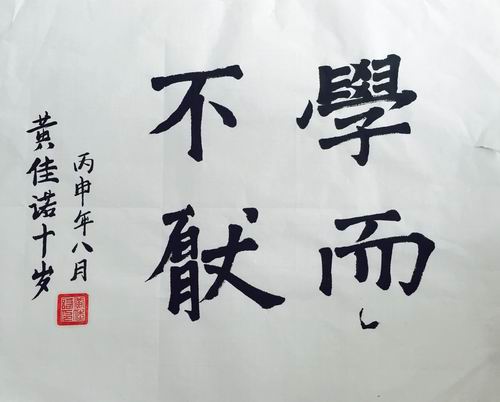 學而
不厭
丙申年八月
黄佳诺十岁